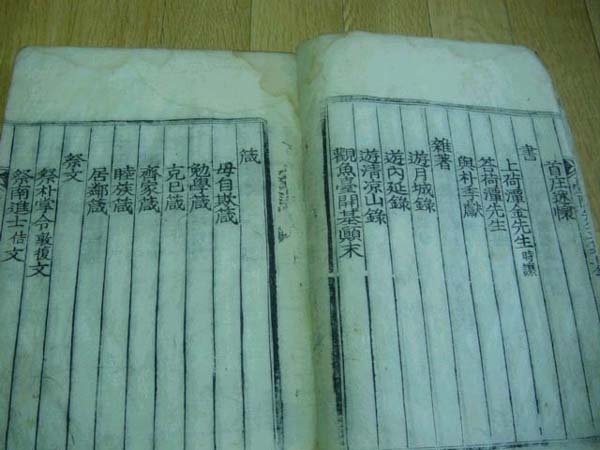 首庄述懷
書
上荷潭金先生時讓
答荷潭先生
與朴
雜著
遊月城錄
遊内延錄
遊清凉山錄
觀魚臺開基顚末
箴
毋自欺箴
勉學箴
克己箴
齊家箴
睦族箴
居鄕箴
祭文
祭朴掌令敦復文
祭南進士佶文